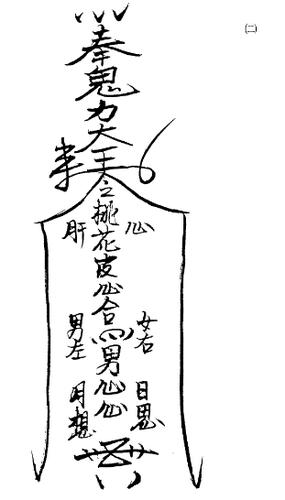 ㈡
奉鬼力大王
令桃花
心
肝
心合
男
女右
男左
日思
月想